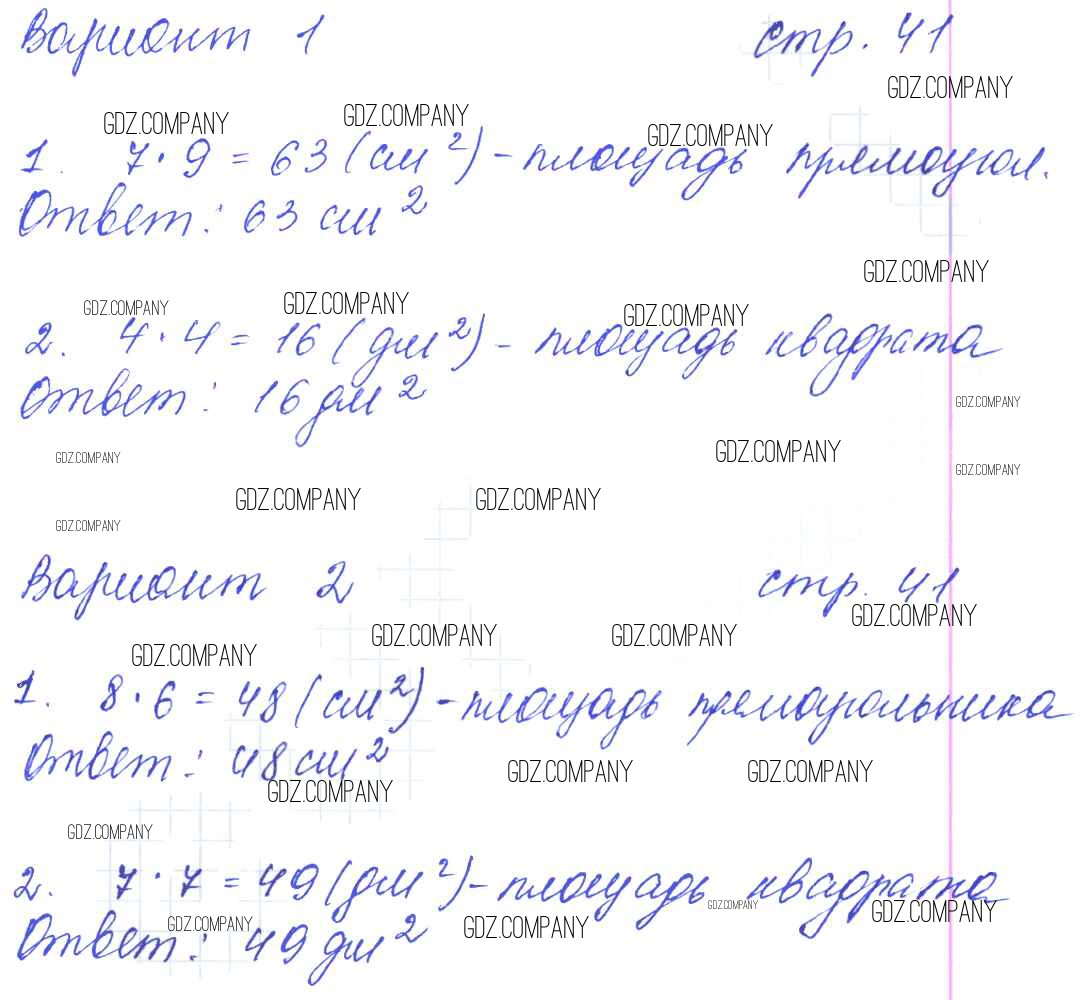 Вариант 1 стр. 41
GDZ.COMPANY
GDZ.COMPANY GDZ.COMPANY GDZ.COMPANY
1. 7 · 9 = 63 (см²) - площадь прямоугол.
Ответ: 63 см²
GDZ.COMPANY
GDZ.COMPANY GDZ.COMPANY GDZ.COMPANY
2. 4 · 4 = 16 (дм²) - площадь квадрата
Ответ: 16 дм²
GDZ.COMPANY
GDZ.COMPANY GDZ.COMPANY
GDZ.COMPANY
GDZ.COMPANY GDZ.COMPANY
GDZ.COMPANY
Вариант 2 стр. 41
GDZ.COMPANY
GDZ.COMPANY GDZ.COMPANY GDZ.COMPANY
1. 8 · 6 = 48 (см²) - площадь прямоугольника
Ответ: 48 см²
GDZ.COMPANY GDZ.COMPANY GDZ.COMPANY
GDZ.COMPANY
2. 7 · 7 = 49 (дм²) - площадь квадрата
GDZ.COMPANY GDZ.COMPANY
Ответ: 49 дм²
GDZ.COMPANY GDZ.COMPANY